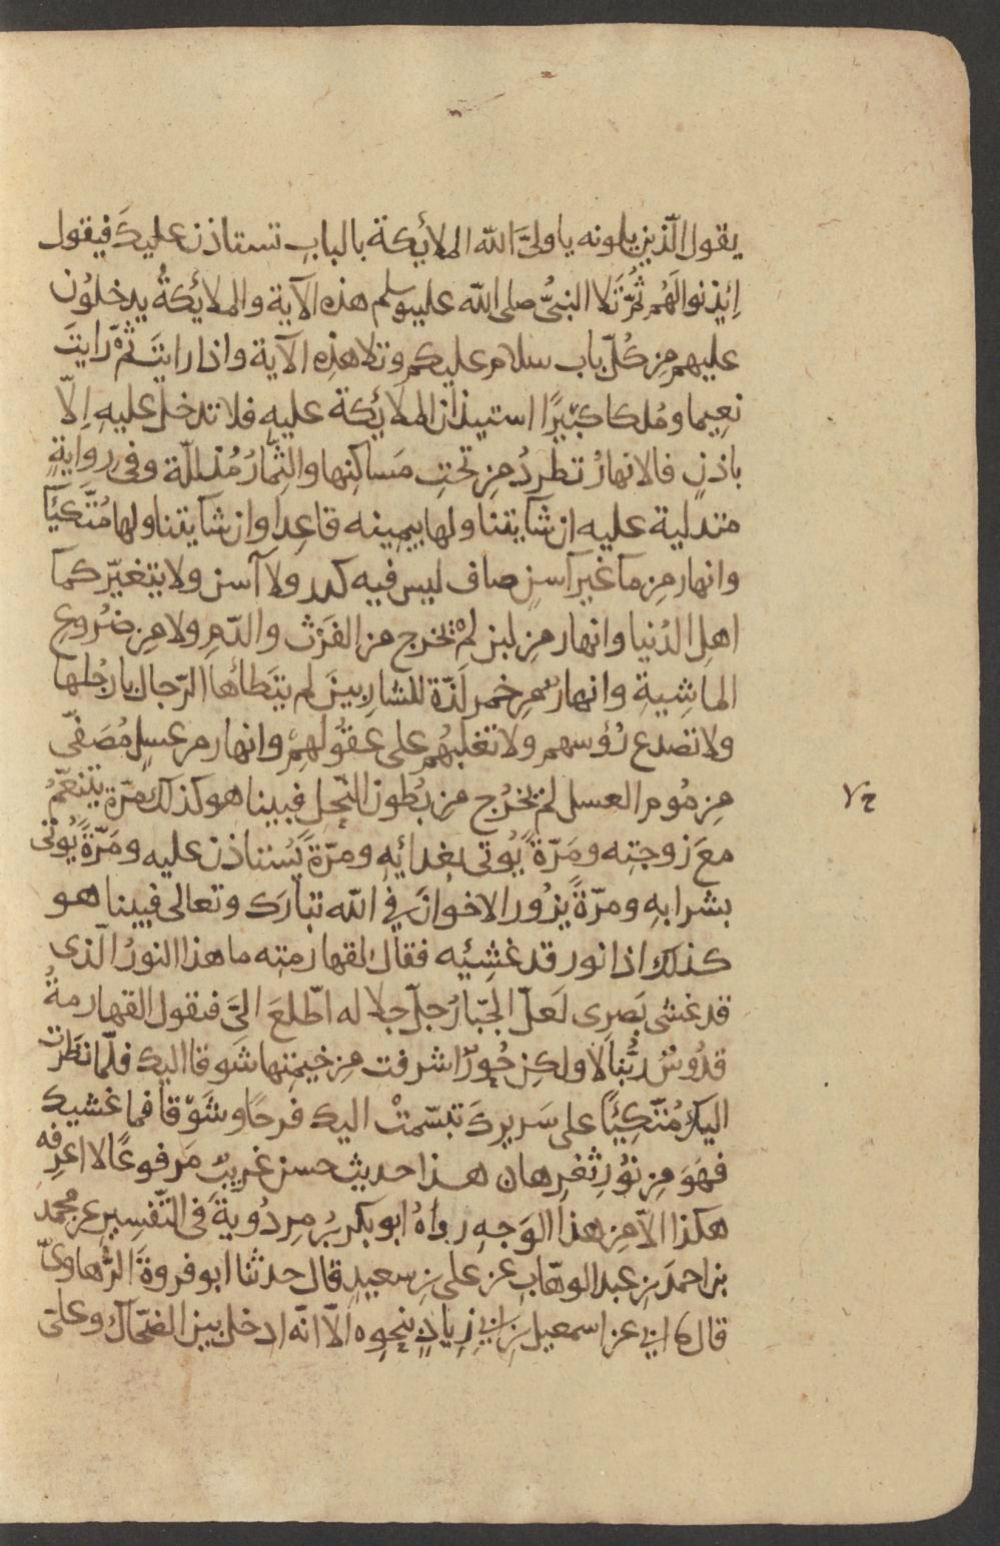 يقول الّذين يلونه يا وليَّ الله الملائكة بالبابِ تستاذن عليكَ فيقول
اِئذنوا لَهُم ثُمَّ تَلا النبىُّ صلى الله عليه وسلم هذه الآية والملائكةُ يدخلوُن
عليهم مِن كُلّ باب سلام عليكم وتلا هذِه الآية واذا رايتَ ثمّ رَايتَ
نعِيما ومُلكا كبيرًا استيذان الملائكة عليهِ فلا تدخل عليهِ اِلّا
باذنٍ فالانهارُ تطردُ مِن تحتِ مَساكِنها والثِمارُ مُذللّة وفى روايةٍ
متدلية عليه ان شآ يتناولها بيمِينه قاعِدا وان شآ يتناولها مُتّكيًا
وانهار مِن مآ غير آسنٍ صاف ليس فيه كدر ولا آسن ولا يتغيّر كمآ
اهلِ الدُنيا وانهار مِن لبن لمْ تخرج من الفَرْث والدّمِ ولا مِن ضرُوعِ
الماشِيةِ وانهارٌ مِن خمر لَذّة للشارِبينَ لم يتَطأها الرّجال بارجُلها
ولا تصدع رُؤسهم ولا تغلبُهم على عقوُلهِمْ وانهار من عسلٍ مُصَفّى
مِن مُوم العسل لم يخرُج مِن بُطون النّحِل فبينا هو كذلك مرّة يتنعّمُ
معَ زوجتِه ومَرّةً يُوتى بغِدائِهِ ومرّةً يُستاذن عليه ومَرّةً يُوتى
بشرابِهِ ومرّةً يزُور الاخوانَ فى الله تبارَك وتعالى فبينا هو
كذلك اذا نور قد غشِيَه فقال لقهارمتِه ما هذا النورُ الّذى
قد غشى بَصرِى لَعلّ الجبّارُ جلّ جلاله اطّلعَ الىَّ فتقول القهارمةُ
قدُوسٌ ربُّنا لا ولكِن حُورٌ اشرفت مِن خيمتِها شوقا اليك فلّما نظَرت
اليك مُتّكِئيًا على سَريركَ تبسّمتْ اليك فرحًا وشَوقا فما غشيك
فهَوَ مِن نوُرِ ثغرِها ن هذا حديث حسن غريبٌ مَرفوعًا لا اعرِفه
هكذا الاّ مِن هذا الوَجهِ رواهُ ابو بكر بن مِردُويةَ فى التّفسِيرِ عن محمد
بن احمدَ بن عبد الوهّابِ عن على بن سعِيدٍ قال حدثنا ابو فروةَ الرُّهاوىّ
قال ابى عن اسمعيل بن ابى زيادٍ بنحوِه الاّ انّه ادخل بين الضحّاك وعلىّ